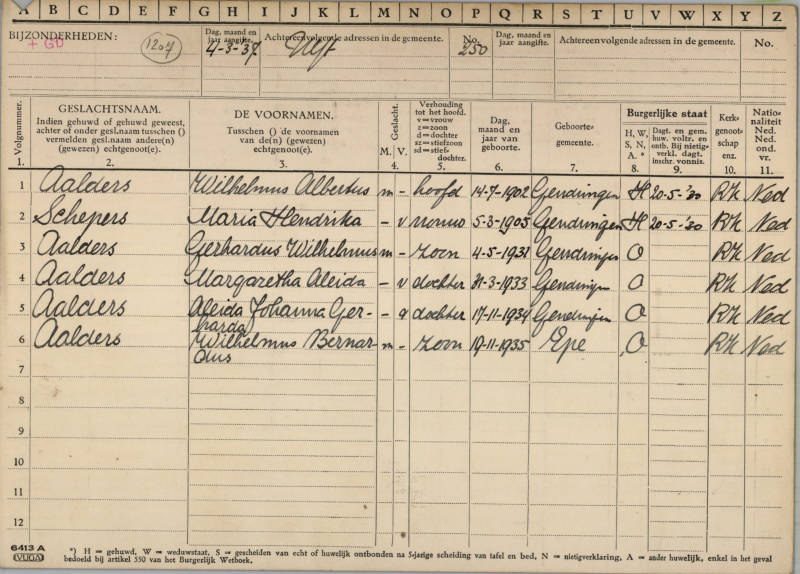 A B C D E F G H I J K L M N O P Q R S T U V W X Y Z
BIJZONDERHEDEN:
+ GD
1207
Dag, maand en jaar aangifte.
4-3-37
Achtereenvolgende adressen in de gemeente.
Ulft
No.
250
Dag, maand en jaar aangifte.
Achtereenvolgende adressen in de gemeente.
No.
Volgnummer.
1.
GESLACHTSNAAM.
Indien gehuwd of gehuwd geweest,
achter of onder gesl.naam tusschen ()
vermelden gesl.naam andere(n)
(gewezen) echtgenoot(e).
2.
DE VOORNAMEN.
Tusschen () de voornamen
van de(n) (gewezen)
echtgenoot(e).
3.
Geslacht.
M. V.
4.
Verhouding
tot het hoofd.
v = vrouw
z = zoon
d = dochter
sz = stiefzoon
sd = stief-
dochter.
5.
Dag,
maand en
jaar van
geboorte.
6.
Geboorte-
gemeente.
7.
Burgerlijke staat
H, W,
S, N,
A. *)
8.
Dagt. en gem.
huw. voltr. en
ontb. Bij nietig-
verkl. dagt.
inschr. vonnis.
9.
Kerk-
genoot-
schap
enz.
10.
Natio-
naliteit
Ned.
Ned.
ond.
vr.
11.
1 Aalders Wilhelmus Albertus m - hoofd 14-7-1902 Gendringen H 20-5-'30 RK Ned
2 Schepers Maria Hendrika - v vrouw 5-3-1905 Gendringen H 20-5-'30 RK Ned
3 Aalders Gerhardus Wilhelmus m - zoon 4-5-1931 Gendringen O RK Ned
4 Aalders Margaretha Aleida - v dochter 31-3-1933 Gendringen O RK Ned
5 Aalders Aleida Johanna Ger- - v dochter 17-11-1934 Gendringen O RK Ned
harda
6 Aalders Wilhelmus Bernar- m - zoon 19-11-1935 Epe O RK Ned
dus
7
8
9
10
11
12
6413 A
VUGA
*) H = gehuwd, W = weduwstaat, S = gescheiden van echt of huwelijk ontbonden na 5-jarige scheiding van tafel en bed, N = nietigverklaring, A = ander huwelijk, enkel in het geval
bedoeld bij artikel 550 van het Burgerlijk Wetboek.